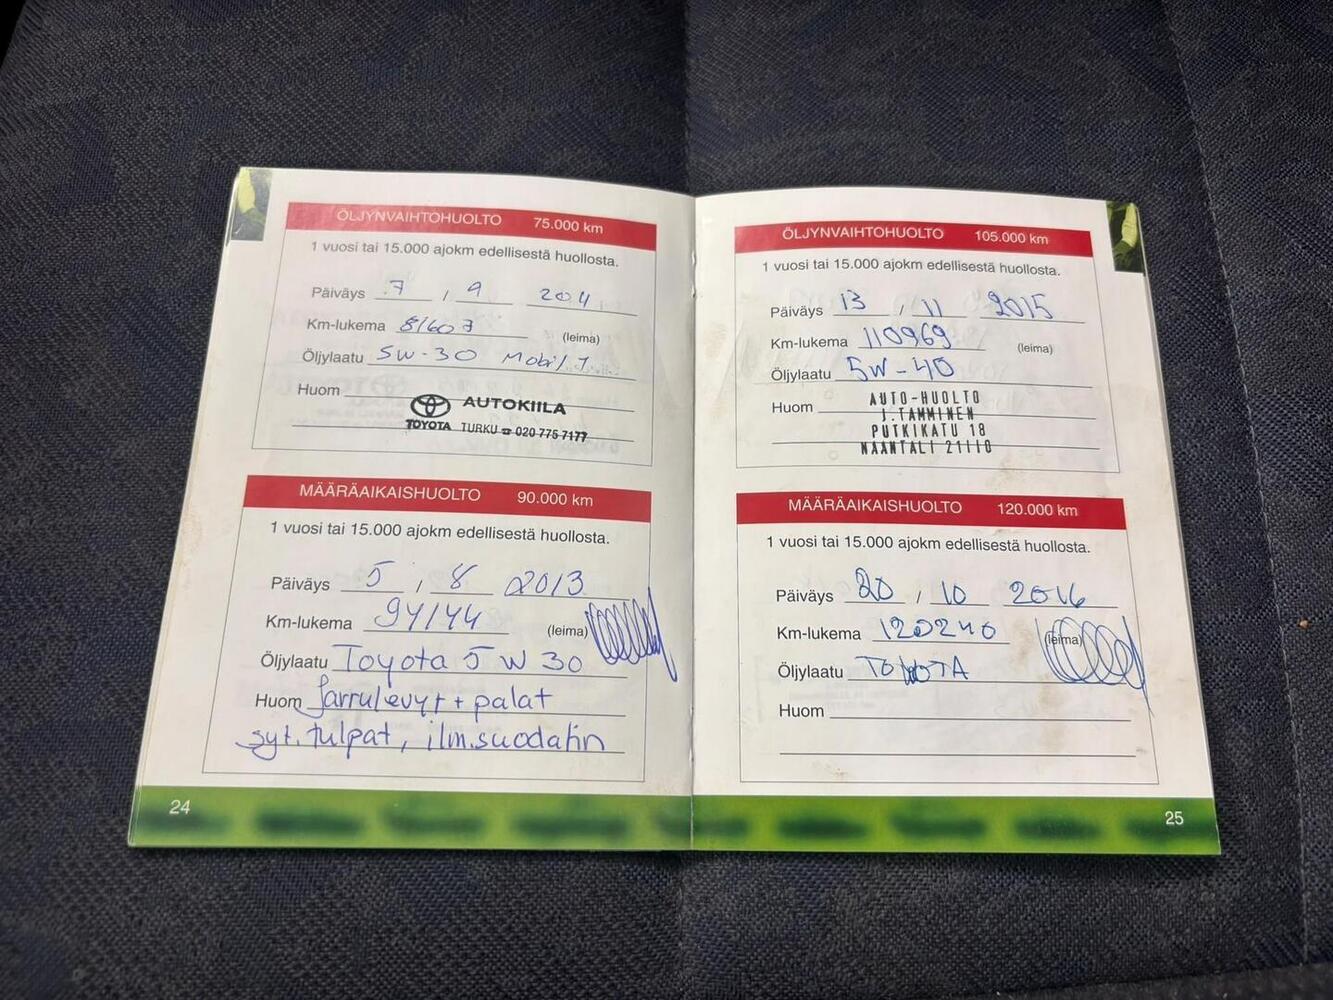 ÖLJYNVAIHTOHUOLTO 75.000 km
1 vuosi tai 15.000 ajokm edellisestä huollosta.
Päiväys 7 , 9 2011
Km-lukema 81607 (leima)
Öljylaatu 5W-30 Mobil 1
Huom
AUTOKIILA
TOYOTA TURKU ☎ 020 775 7177
MÄÄRÄAIKAISHUOLTO 90.000 km
1 vuosi tai 15.000 ajokm edellisestä huollosta.
Päiväys 5 , 8 2013
Km-lukema 94144 (leima)
Öljylaatu Toyota 5 W 30
Huom Jarrulevyt + palat
syt.tulpat, ilm.suodatin
24
ÖLJYNVAIHTOHUOLTO 105.000 km
1 vuosi tai 15.000 ajokm edellisestä huollosta.
Päiväys 13 , 11 2015
Km-lukema 110969 (leima)
Öljylaatu 5W-40
Huom
AUTO-HUOLTO
J.TAMMINEN
PUTKIKATU 18
NAANTALI 21110
MÄÄRÄAIKAISHUOLTO 120.000 km
1 vuosi tai 15.000 ajokm edellisestä huollosta.
Päiväys 20 , 10 2016
Km-lukema 120240 (leima)
Öljylaatu TOYOTA
Huom
25